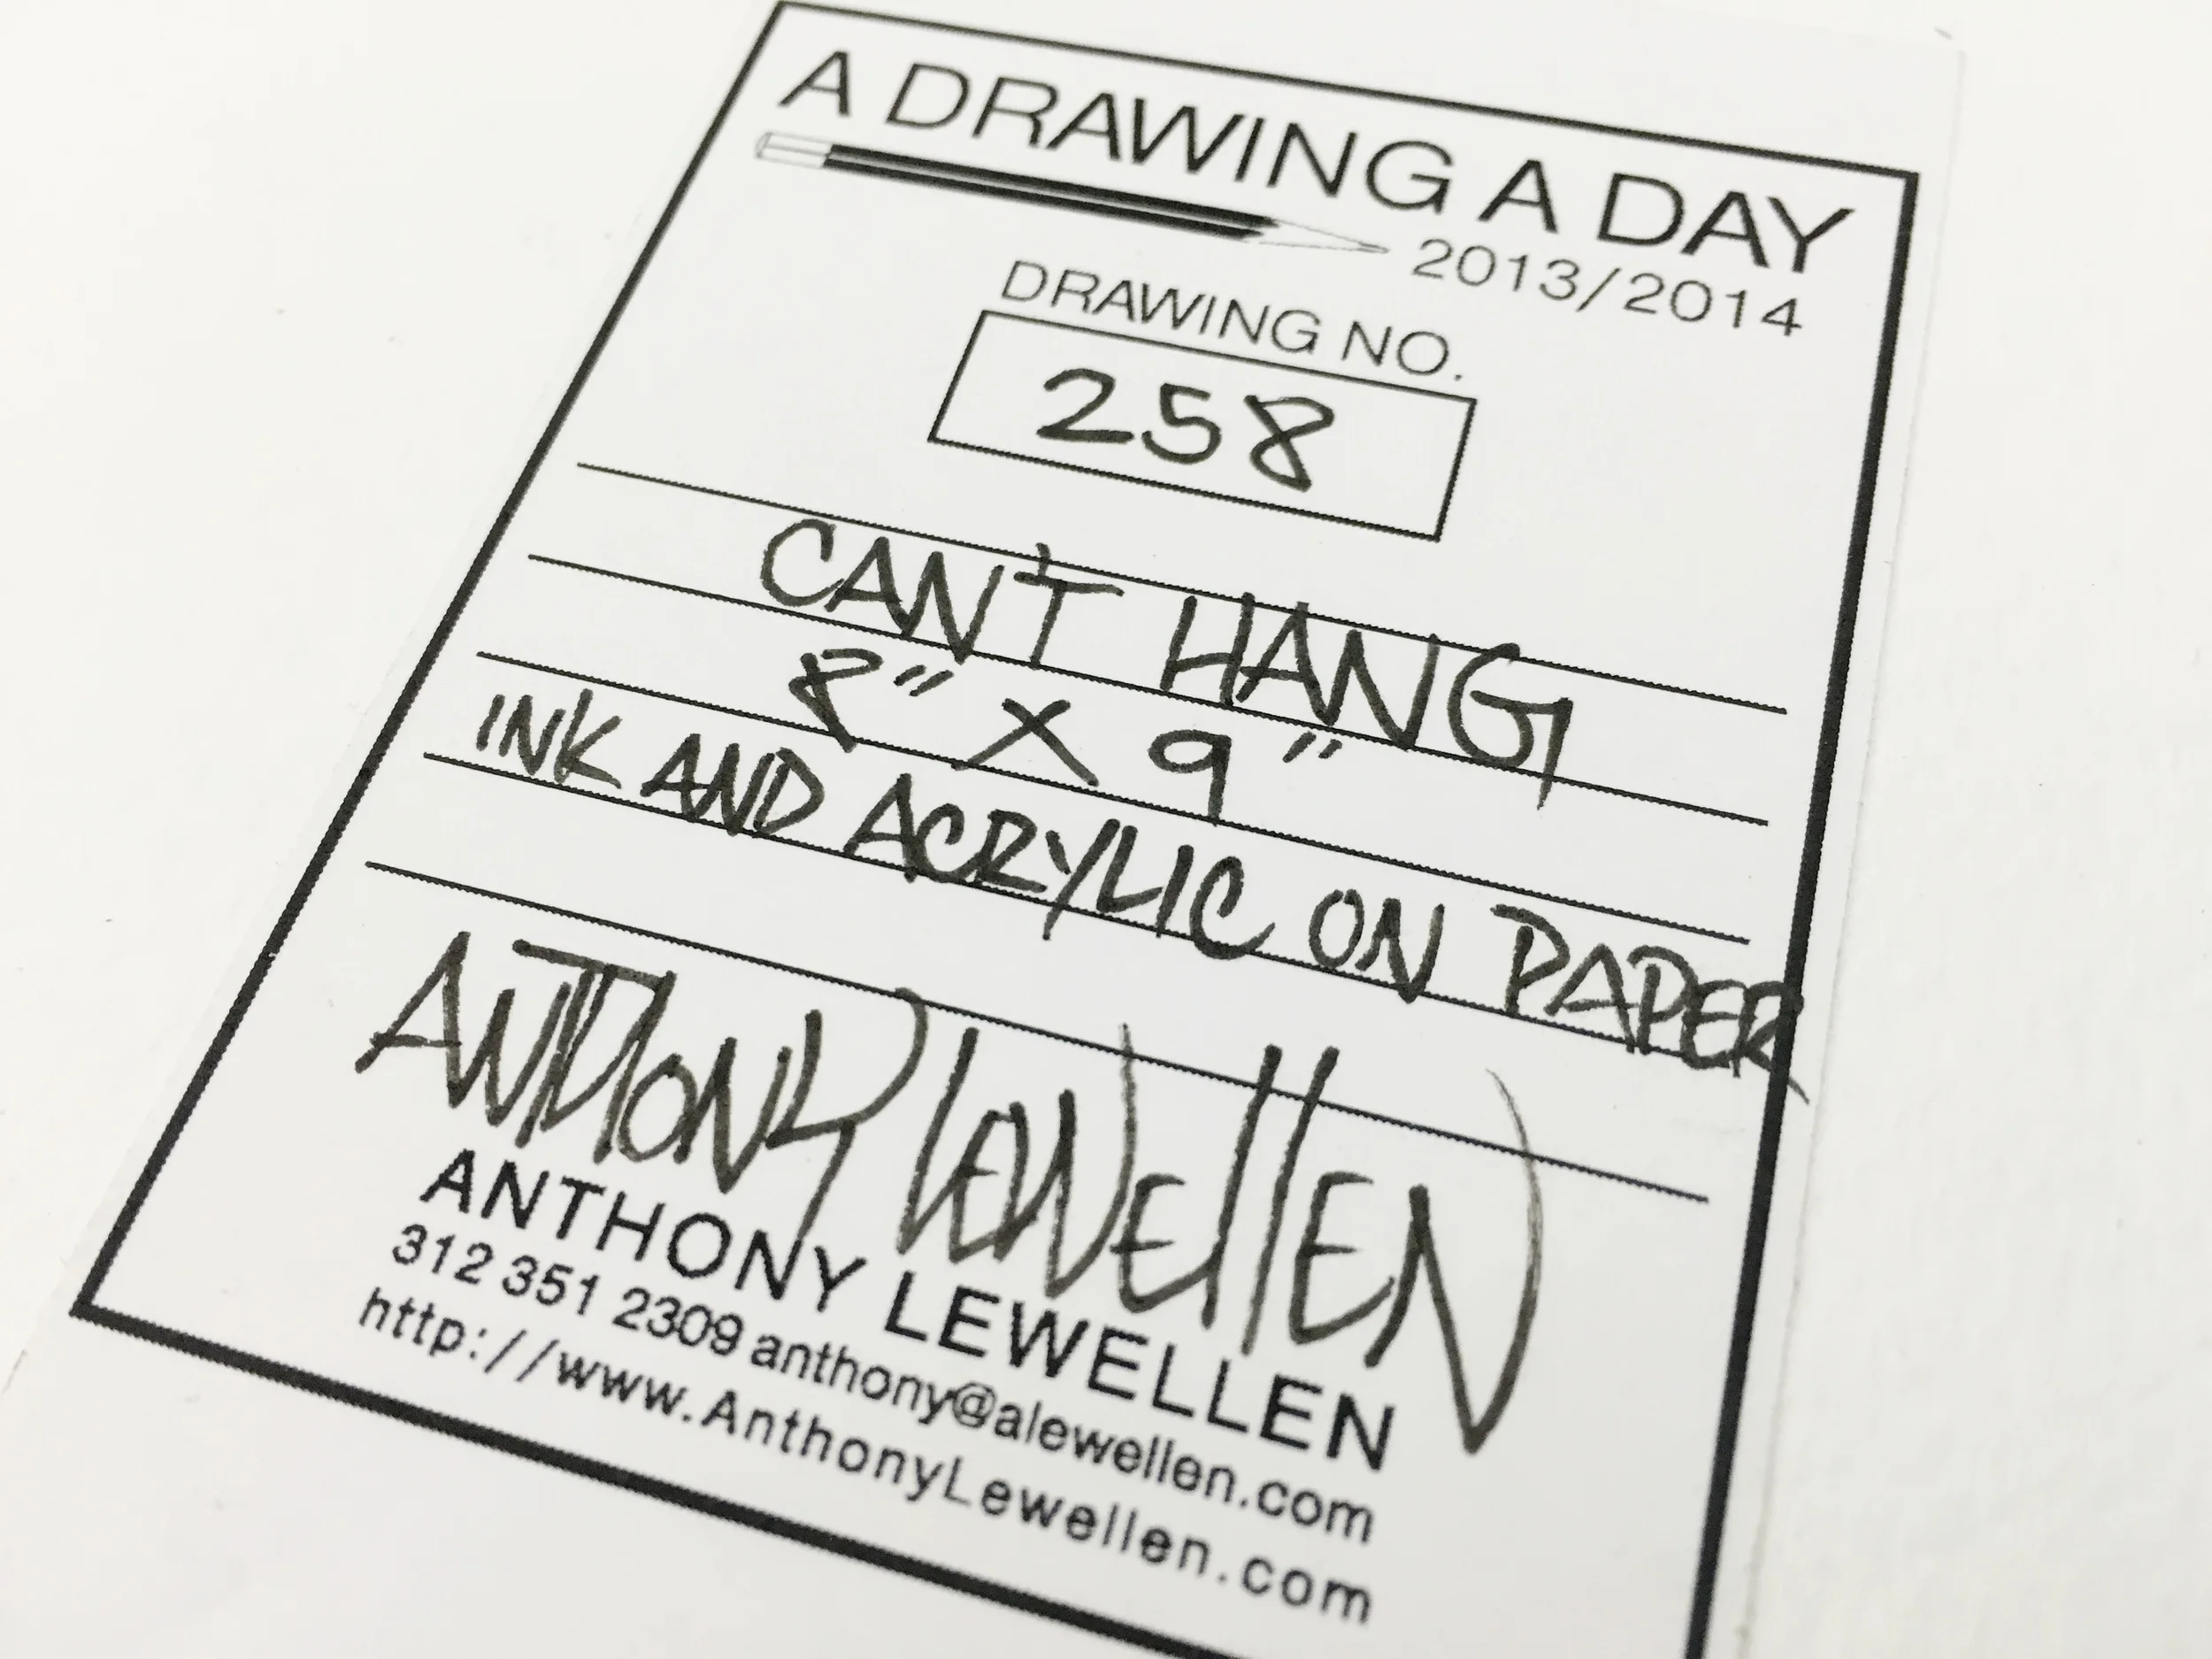 A DRAWING A DAY
2013/2014
DRAWING NO.
258
CAN'T HANG
8" X 9"
INK AND ACRYLIC ON PAPER
ANTHONY LEWELLEN
ANTHONY LEWELLEN
312 351 2309 anthony@alewellen.com
http://www.AnthonyLewellen.com